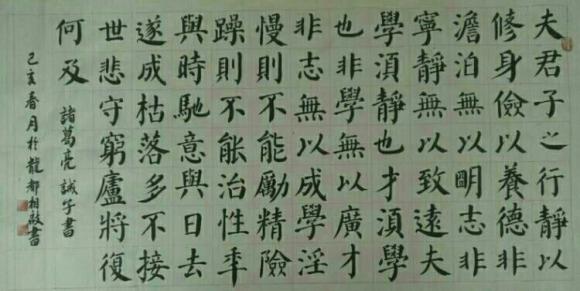 夫君子之行靜以
修身儉以養德非
澹泊無以明志非
寧靜無以致遠夫
學須靜也才須學
也非學無以廣才
非志無以成學淫
慢則不能勵精險
躁則不能治性年
與時馳意與日去
遂成枯落多不接
世悲守窮廬將復
何及
諸葛亮誡子書
己亥春月於龍都書